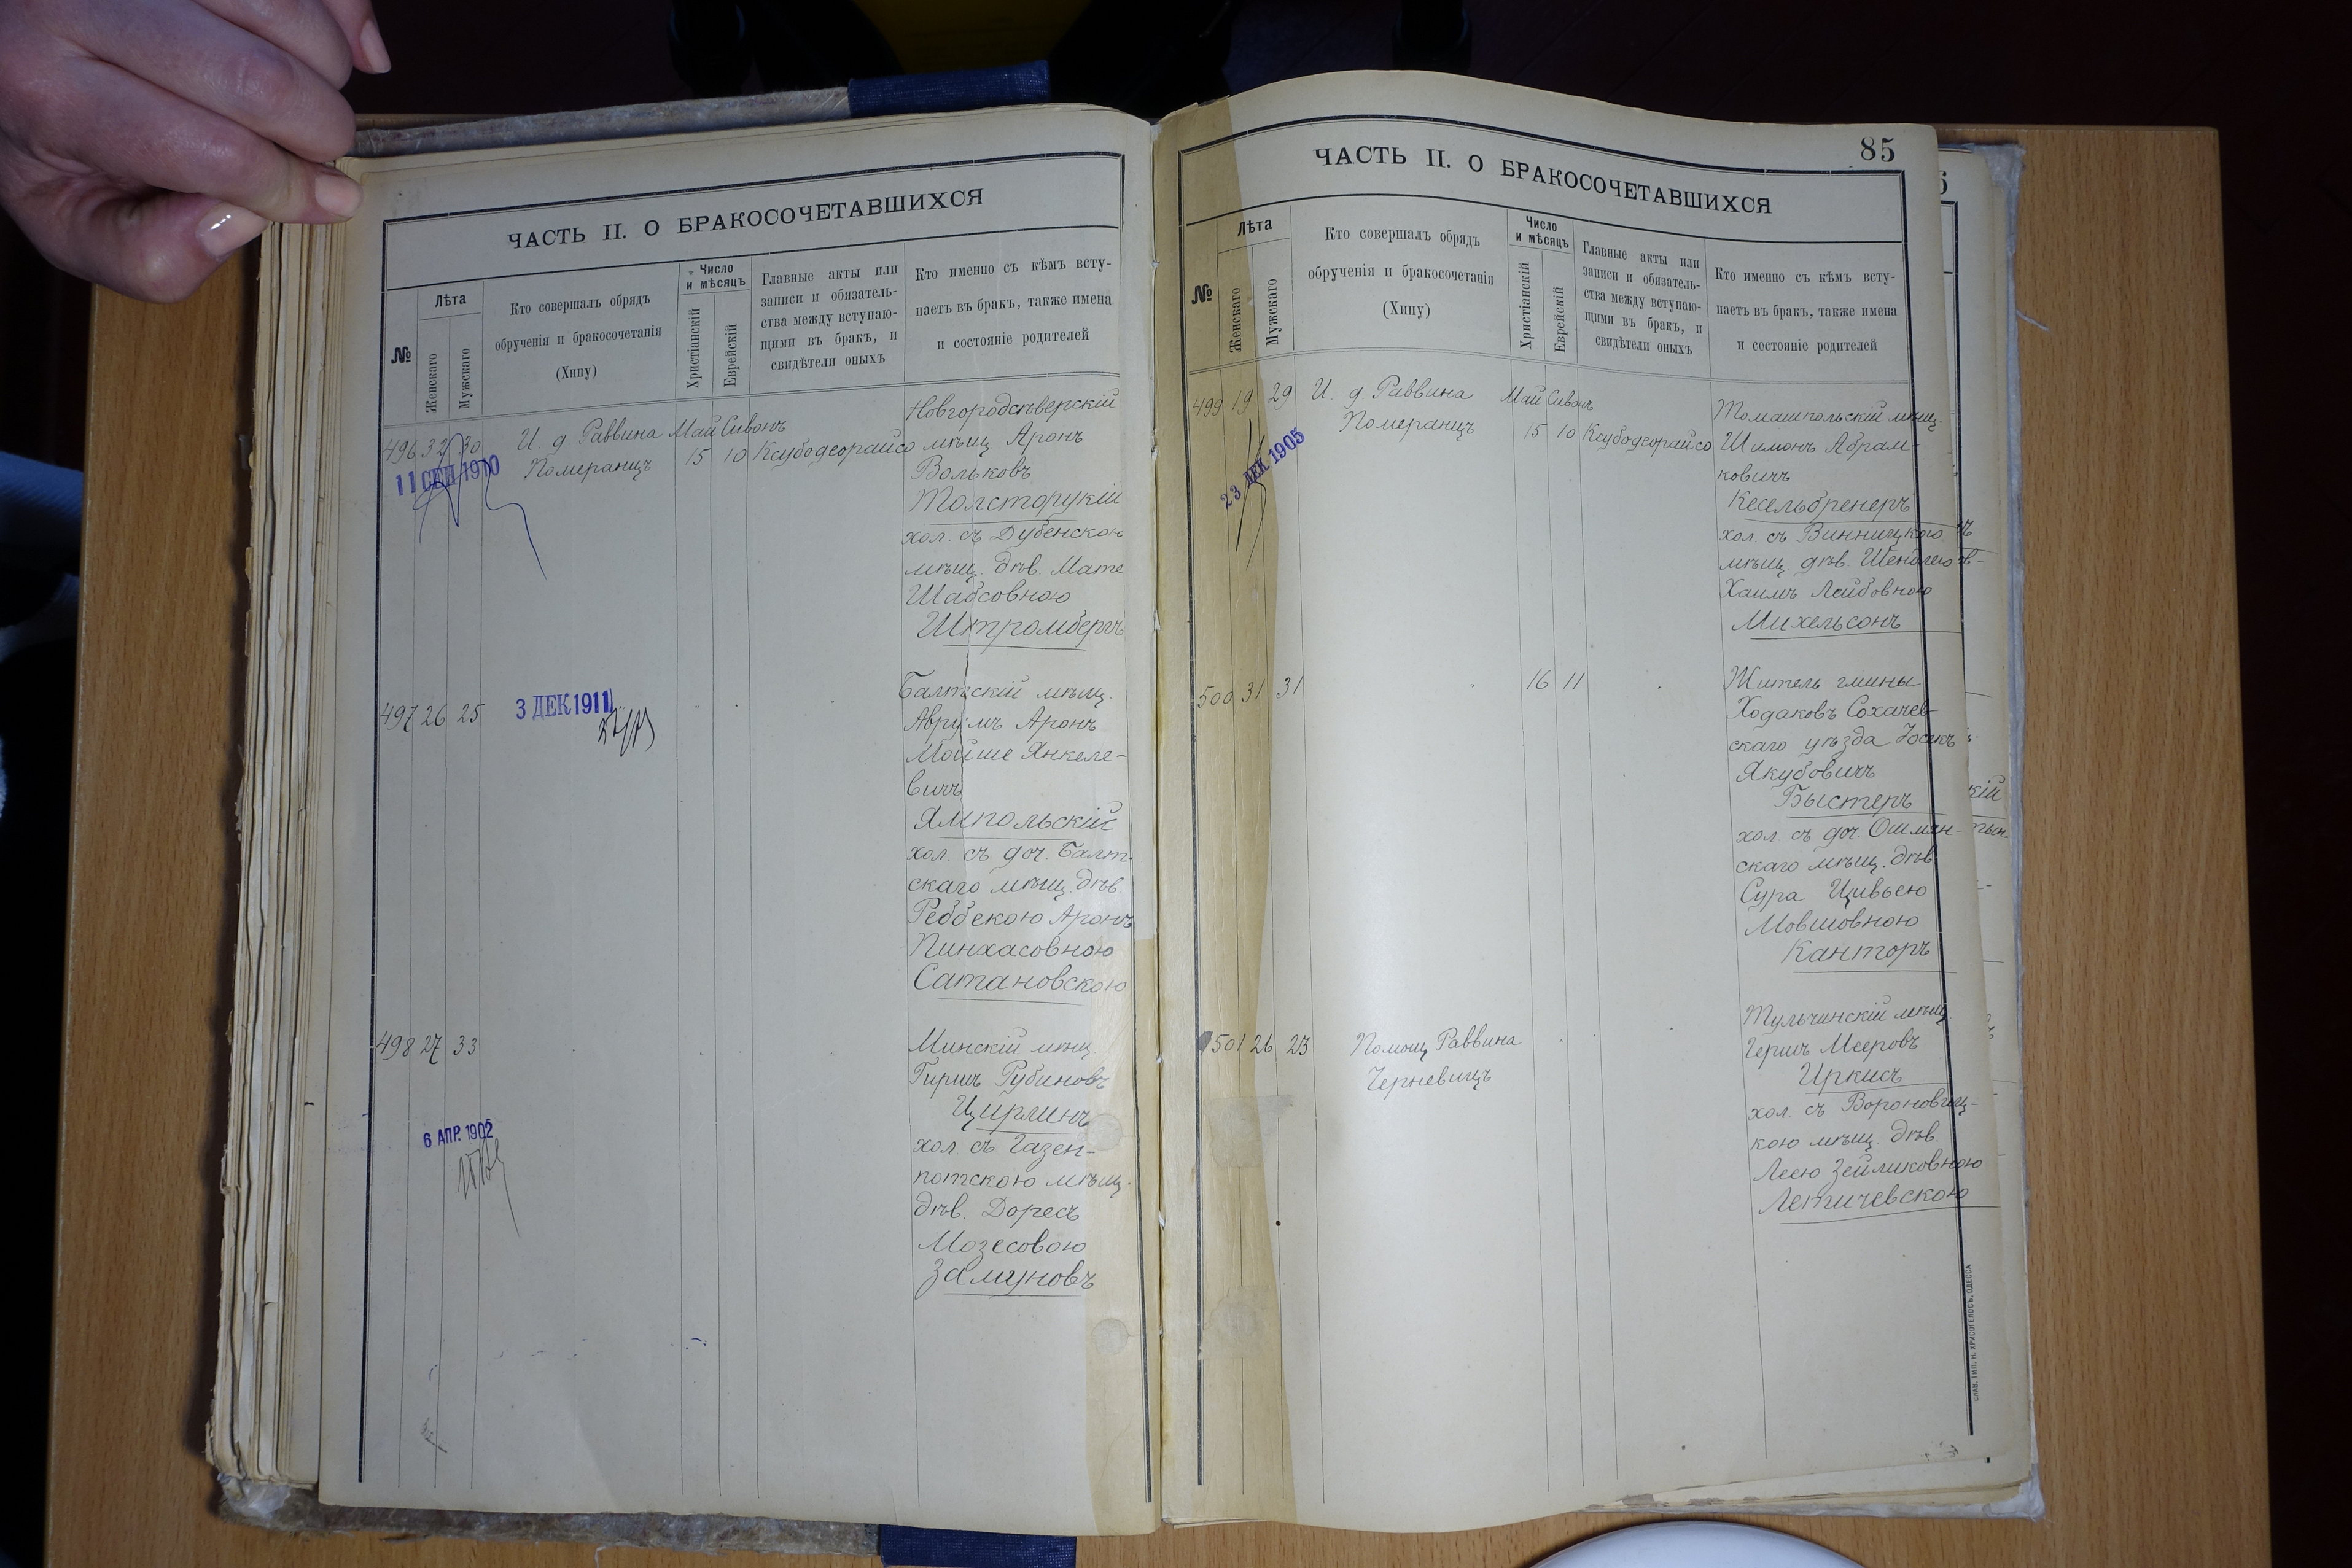 ЧАСТЬ II. О БРАКОСОЧЕТАВШИХСЯ
№
Лѣта
Женскаго
Мужскаго
Кто совершалъ обрядъ
обрученія и бракосочетанія
(Хипу)
Число
и мѣсяцъ
Христіанскій
Еврейскій
Главные акты или
записи и обязатель-
ства между вступаю-
щими въ бракъ, и
свидѣтели оныхъ
Кто именно съ кѣмъ всту-
паетъ въ бракъ, также имена
и состояніе родителей
496 32 30 И. д. Раввина Май Сивонъ
Померанцъ 15 10 Ксубодеорайсо
11 СЕН 1910
Новгородсѣверскій
мѣщ Аронъ
Вольковъ
Толсторукій
хол. съ Дубенскою
мѣщ. дѣв. Мате
Шабсовною
Штромбергъ
497 26 25
3 ДЕК 1911
Балтскій мѣщ.
Аврумъ Аронъ
Мойше Янкеле-
вичъ
Ямпольскій
хол. съ доч. Балт-
скаго мѣщ. дѣв
Реббекою Аронъ
Пинхасовною
Сатановскою
498 27 33
6 АПР. 1902
Минскій мѣщ.
Гиршъ Рубиновъ
Цирлинъ
хол. съ Газен-
потскою мѣщ.
дѣв. Доресъ
Мозесовою
Замуновъ
85
ЧАСТЬ II. О БРАКОСОЧЕТАВШИХСЯ
№
Лѣта
Женскаго
Мужскаго
Кто совершалъ обрядъ
обрученія и бракосочетанія
(Хипу)
Число
и мѣсяцъ
Христіанскій
Еврейскій
Главные акты или
записи и обязатель-
ства между вступаю-
щими въ бракъ, и
свидѣтели оныхъ
Кто именно съ кѣмъ всту-
паетъ въ бракъ, также имена
и состояніе родителей
499 19 29 И. д. Раввина Май Сивонъ
Померанцъ 15 10 Ксубодеорайсо
23 ДЕК 1905
Томашпольскій мѣщ.
Шимонъ Абрам-
ковичъ
Кесельбренеръ
хол. съ Винницкою
мѣщ. дѣв. Шендлею
Хаимъ Лейбовною
Михельсонъ
500 31 31 16 11
Житель гмины
Ходаковъ Сохачев-
скаго уѣзда Іосекъ
Якубовичъ
Быстеръ
хол. съ доч. Ошмян-
скаго мѣщ. дѣв.
Сура Цивьею
Мовшовною
Канторъ
501 26 23 Помощ Раввина
Черневицъ
Тульчинскій мѣщ
Гершъ Мееровъ
Иркисъ
хол. съ Вороновиц-
кою мѣщ. дѣв.
Леею Зейликовною
Летичевскою